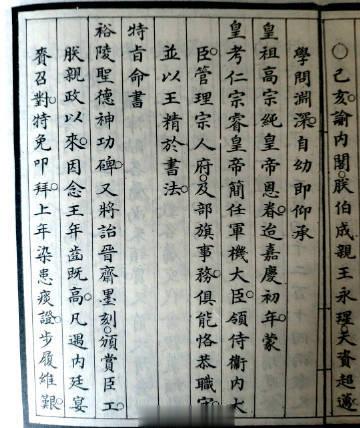 ○己亥諭內閣朕伯成親王永瑆天資超邁
學問淵深自幼即仰承
皇祖高宗純皇帝恩眷迨嘉慶初年蒙
皇考仁宗睿皇帝簡任軍機大臣領侍衛內大
臣管理宗人府及部旗事務俱能恪恭職守
並以王精於書法
特旨命書
裕陵聖德神功碑又將詒晉齋墨刻頒賞臣工
朕親政以來因念王年齒既高凡遇內廷宴
賚召對特免叩拜上年染患痰證步履維艱